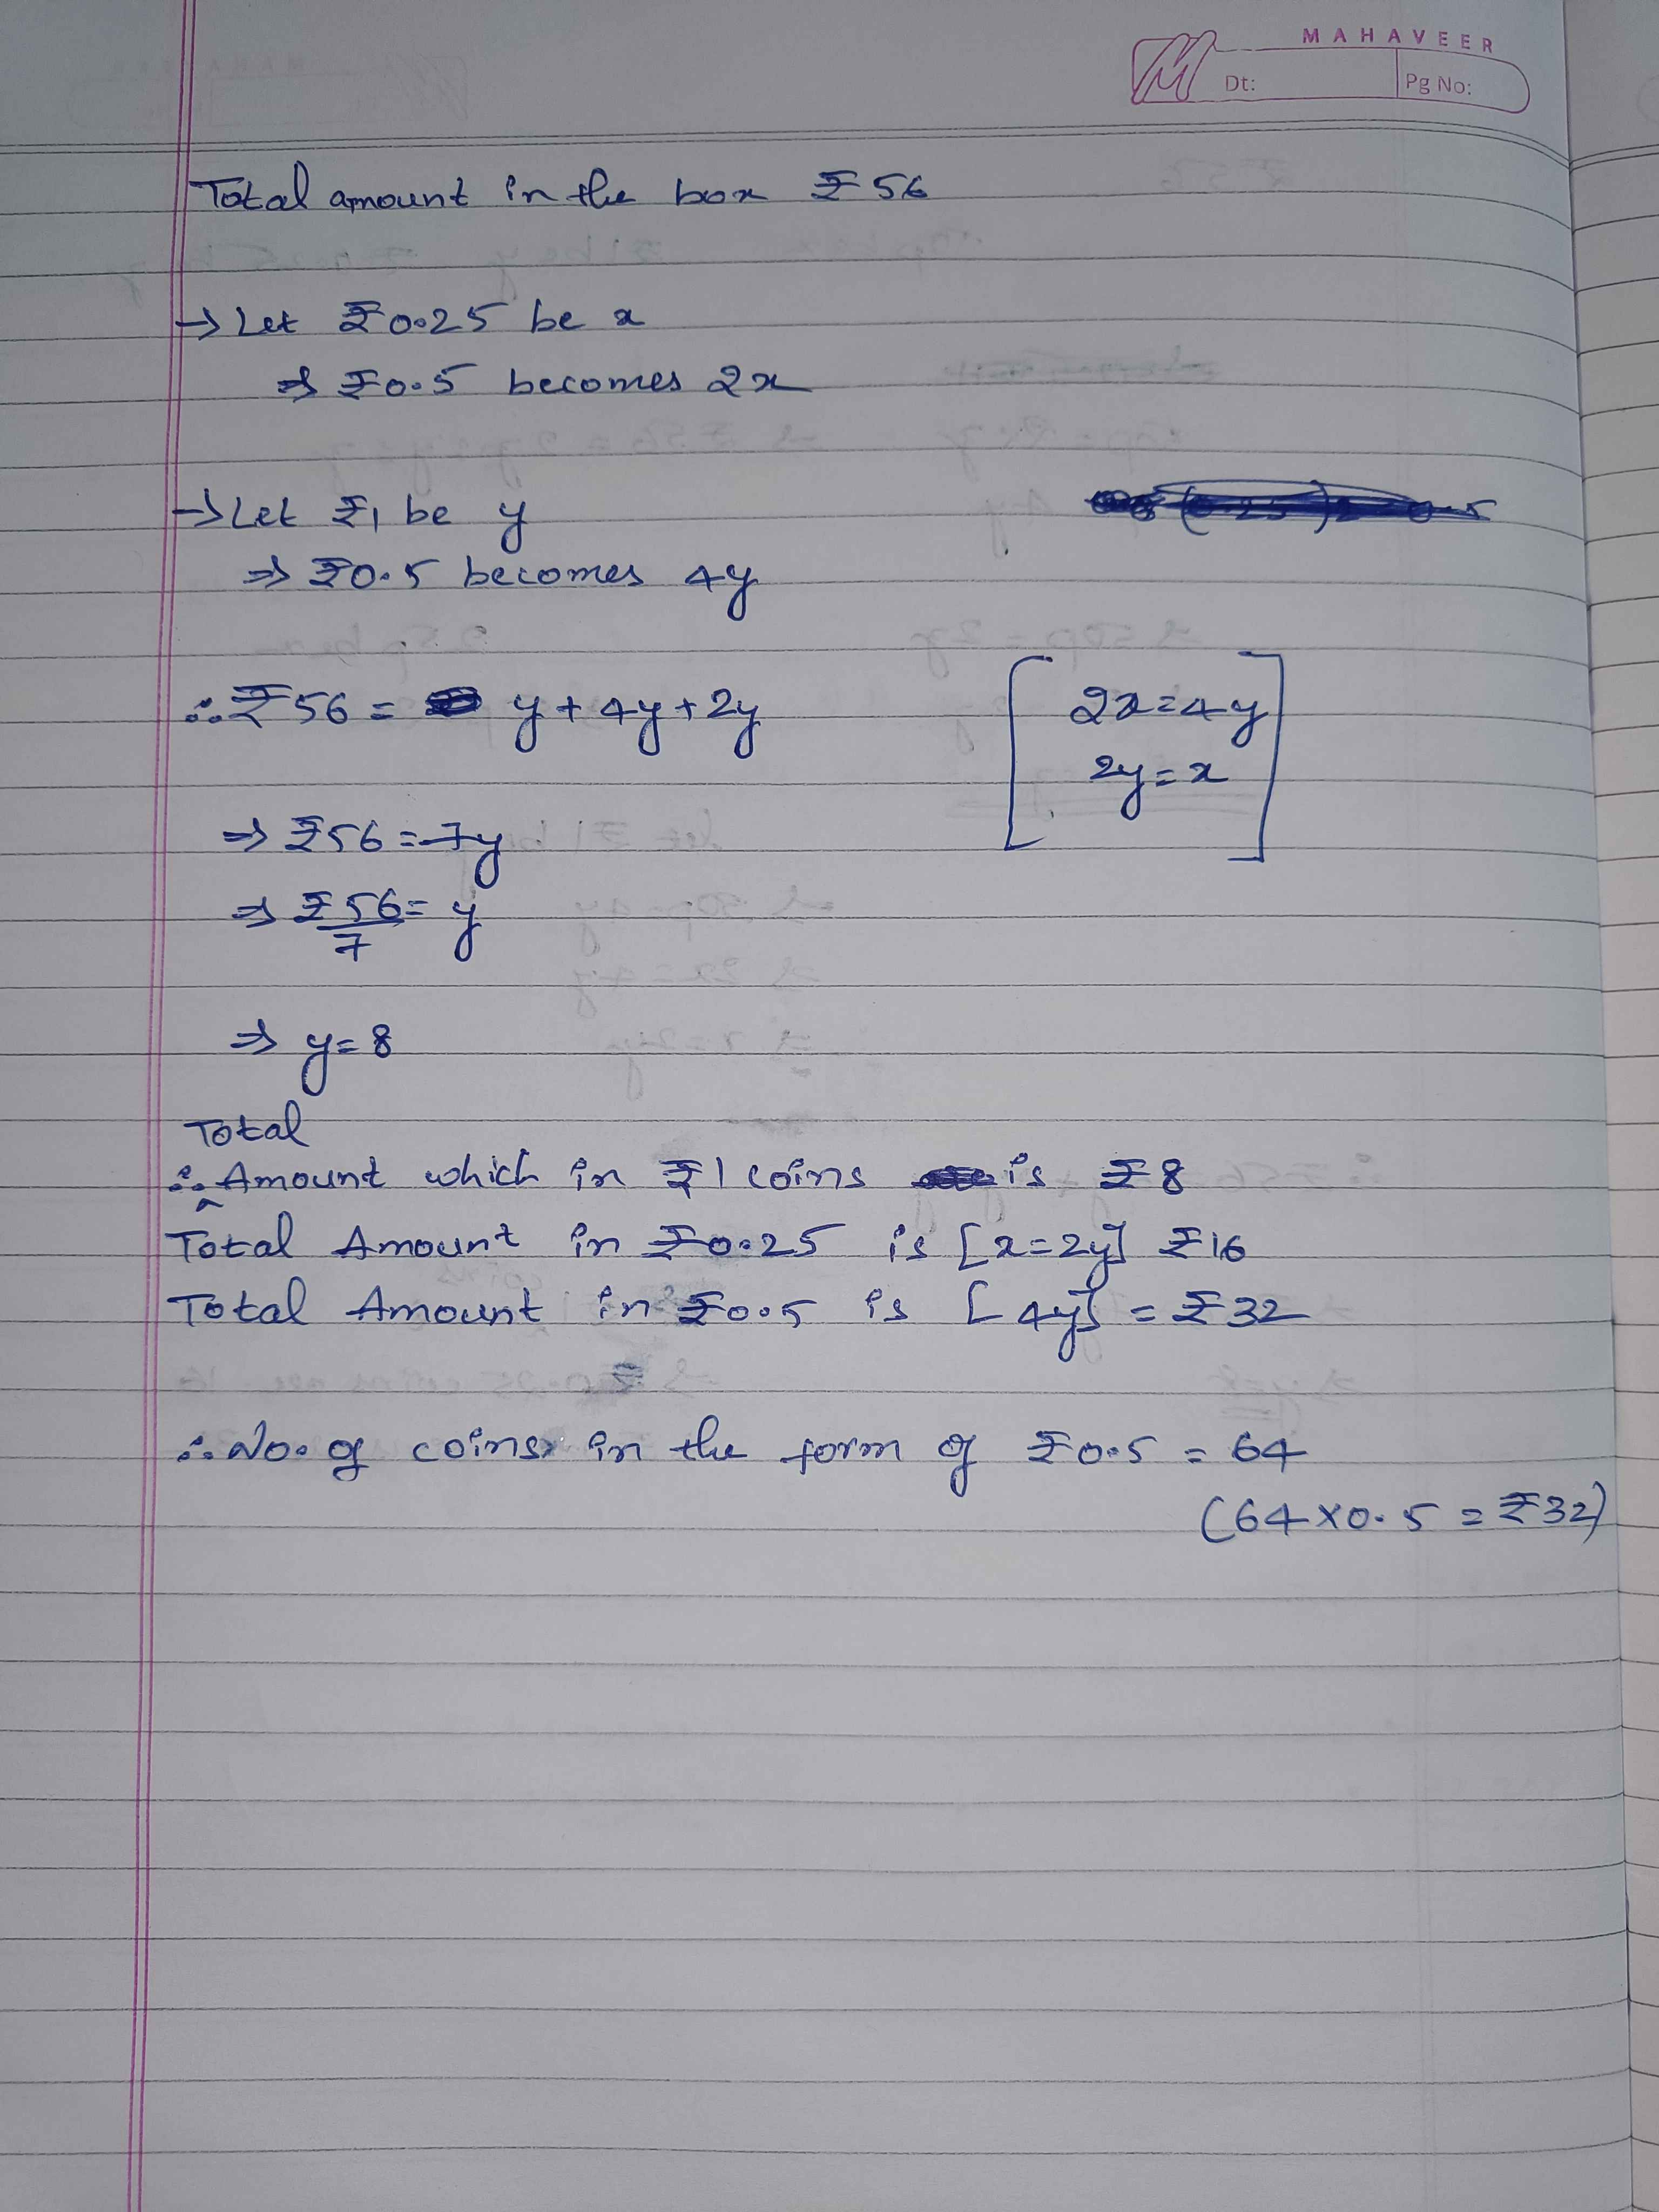 MAHAVEER
Dt:
Pg No:
Total amount in the box ₹56
→ Let ₹0.25 be x
⇒ ₹0.5 becomes 2x
→ Let ₹1 be y
⇒ ₹0.5 becomes 4y
∴ ₹56 = y + 4y + 2y
[ 2x = 4y
2y = x ]
⇒ ₹56 = 7y
⇒ ₹56/7 = y
⇒ y = 8
Total
∴ Amount which in ₹1 coins is ₹8
Total Amount in ₹0.25 is [x = 2y] ₹16
Total Amount in ₹0.5 is [4y] = ₹32
∴ No. of coins in the form of ₹0.5 = 64
(64 × 0.5 = ₹32)